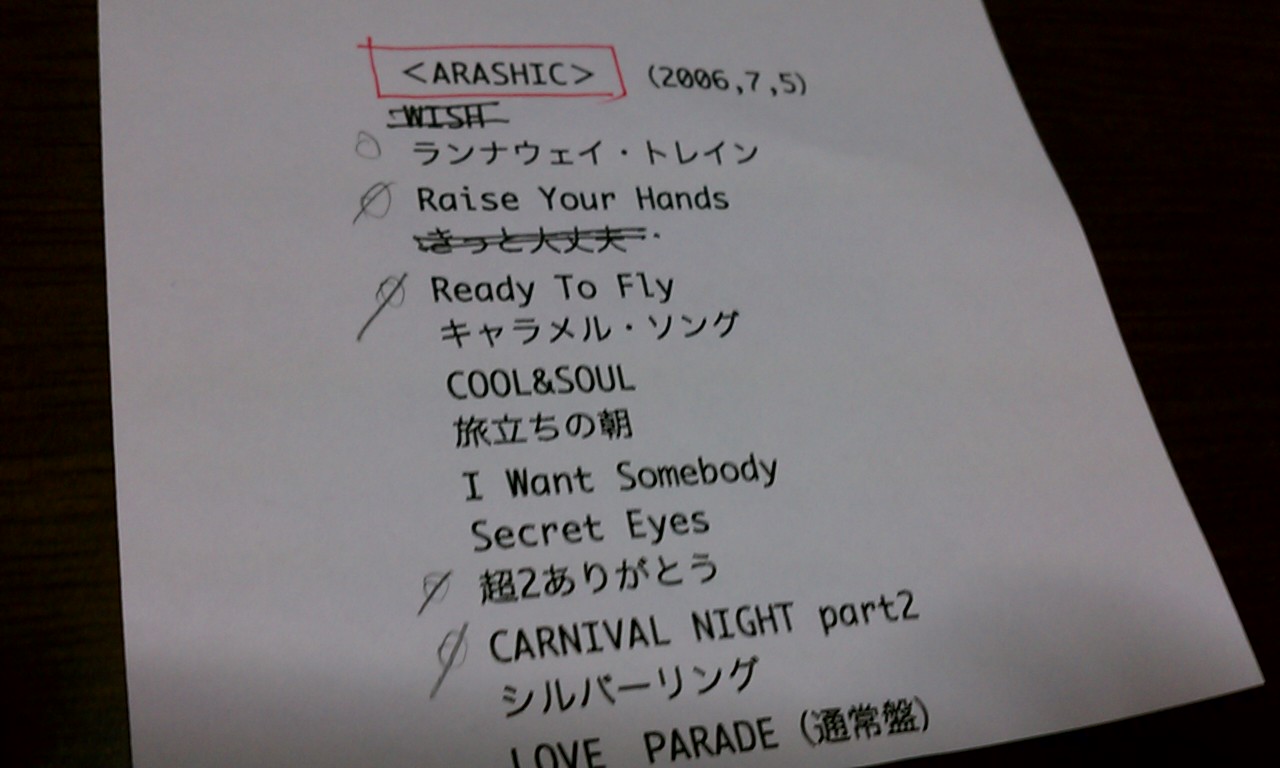 <ARASHIC> (2006,7,5)
WISH
ランナウェイ・トレイン
Raise Your Hands
きっと大丈夫
Ready To Fly
キャラメル・ソング
COOL&SOUL
旅立ちの朝
I Want Somebody
Secret Eyes
超2ありがとう
CARNIVAL NIGHT part2
シルバーリング
LOVE PARADE (通常盤)